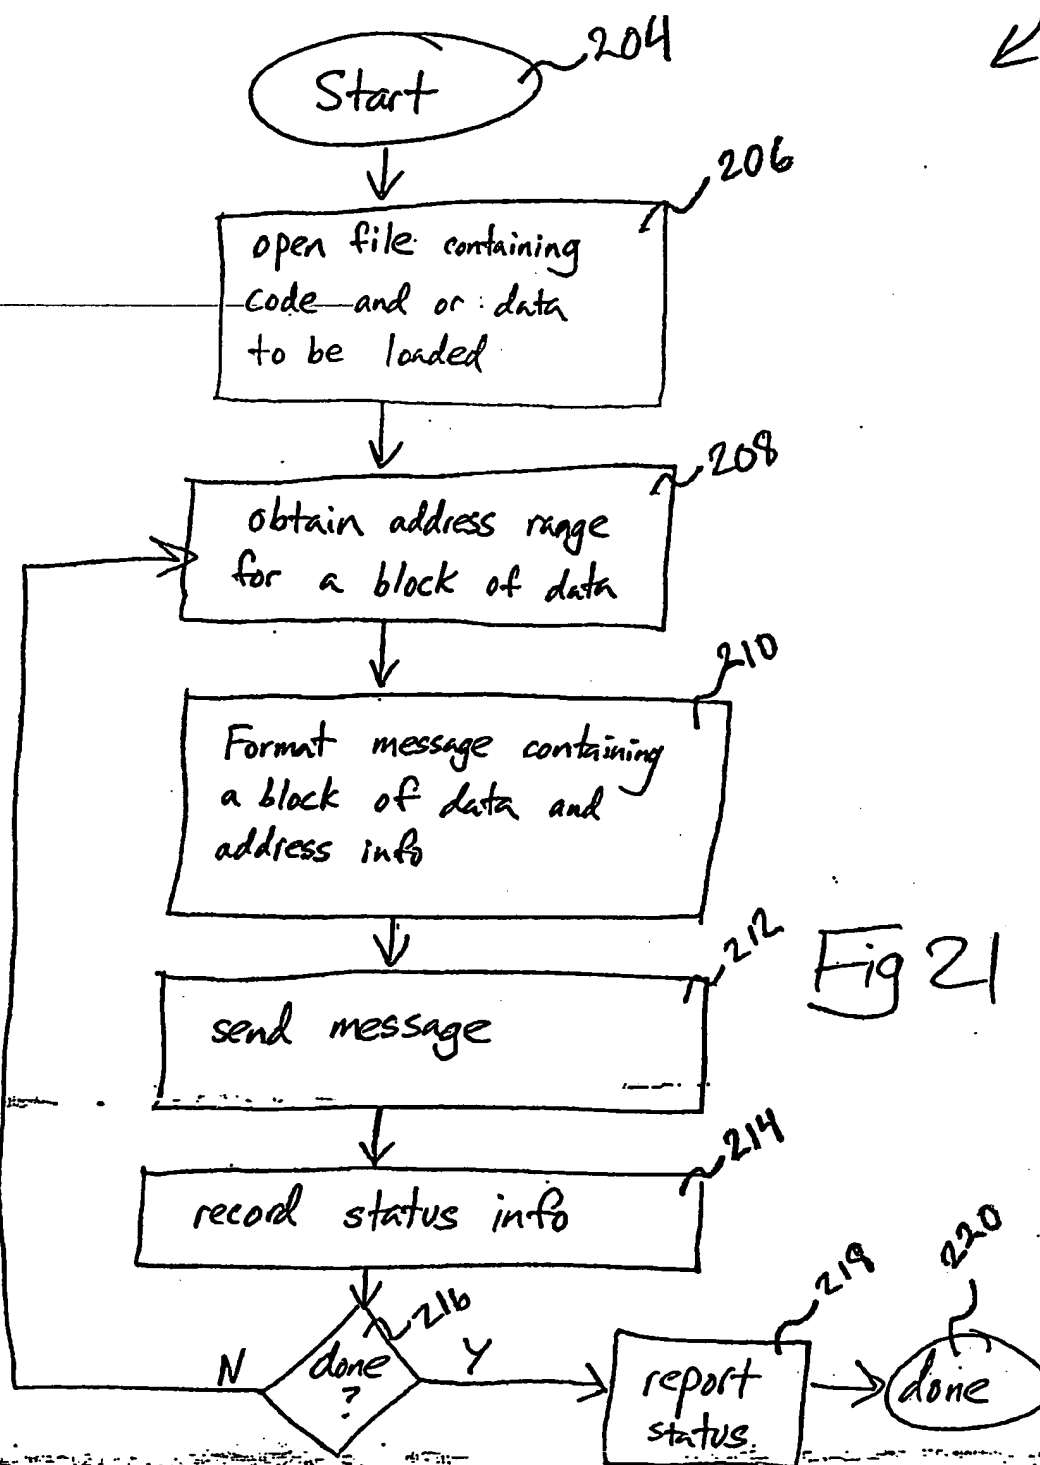 204
Start
206
open file containing
code and or data
to be loaded
208
obtain address range
for a block of data
210
Format message containing
a block of data and
address info
212
Fig 21
send message
214
record status info
216
done
?
N
Y
218
report
status
220
done